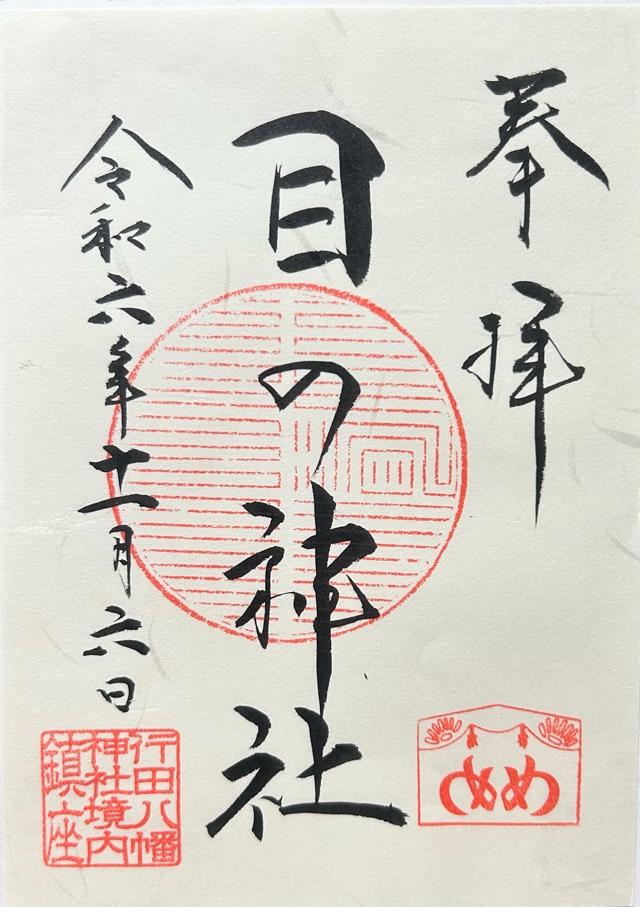 奉拝
目の神社
令和六年十一月六日
めめ
行田八幡
神社境内
鎮座